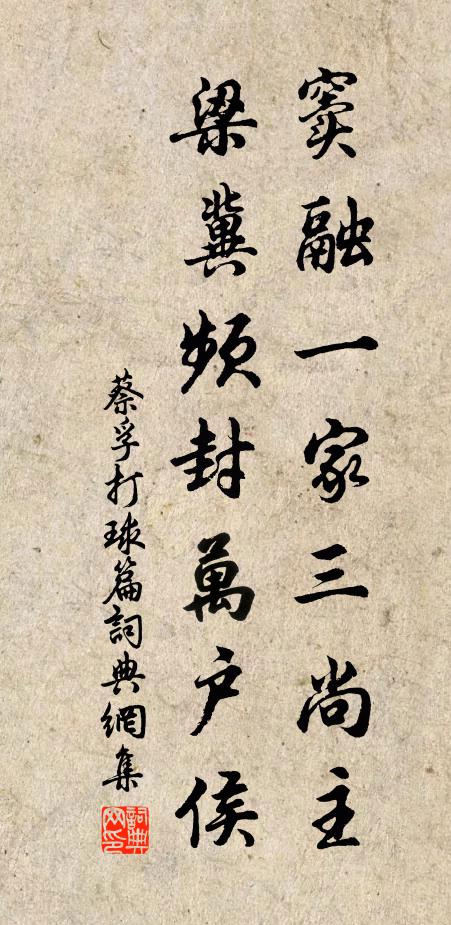 竇融一家三尚主
梁冀頻封萬户侯
蔡孚打球篇詞典網集
詞典网印